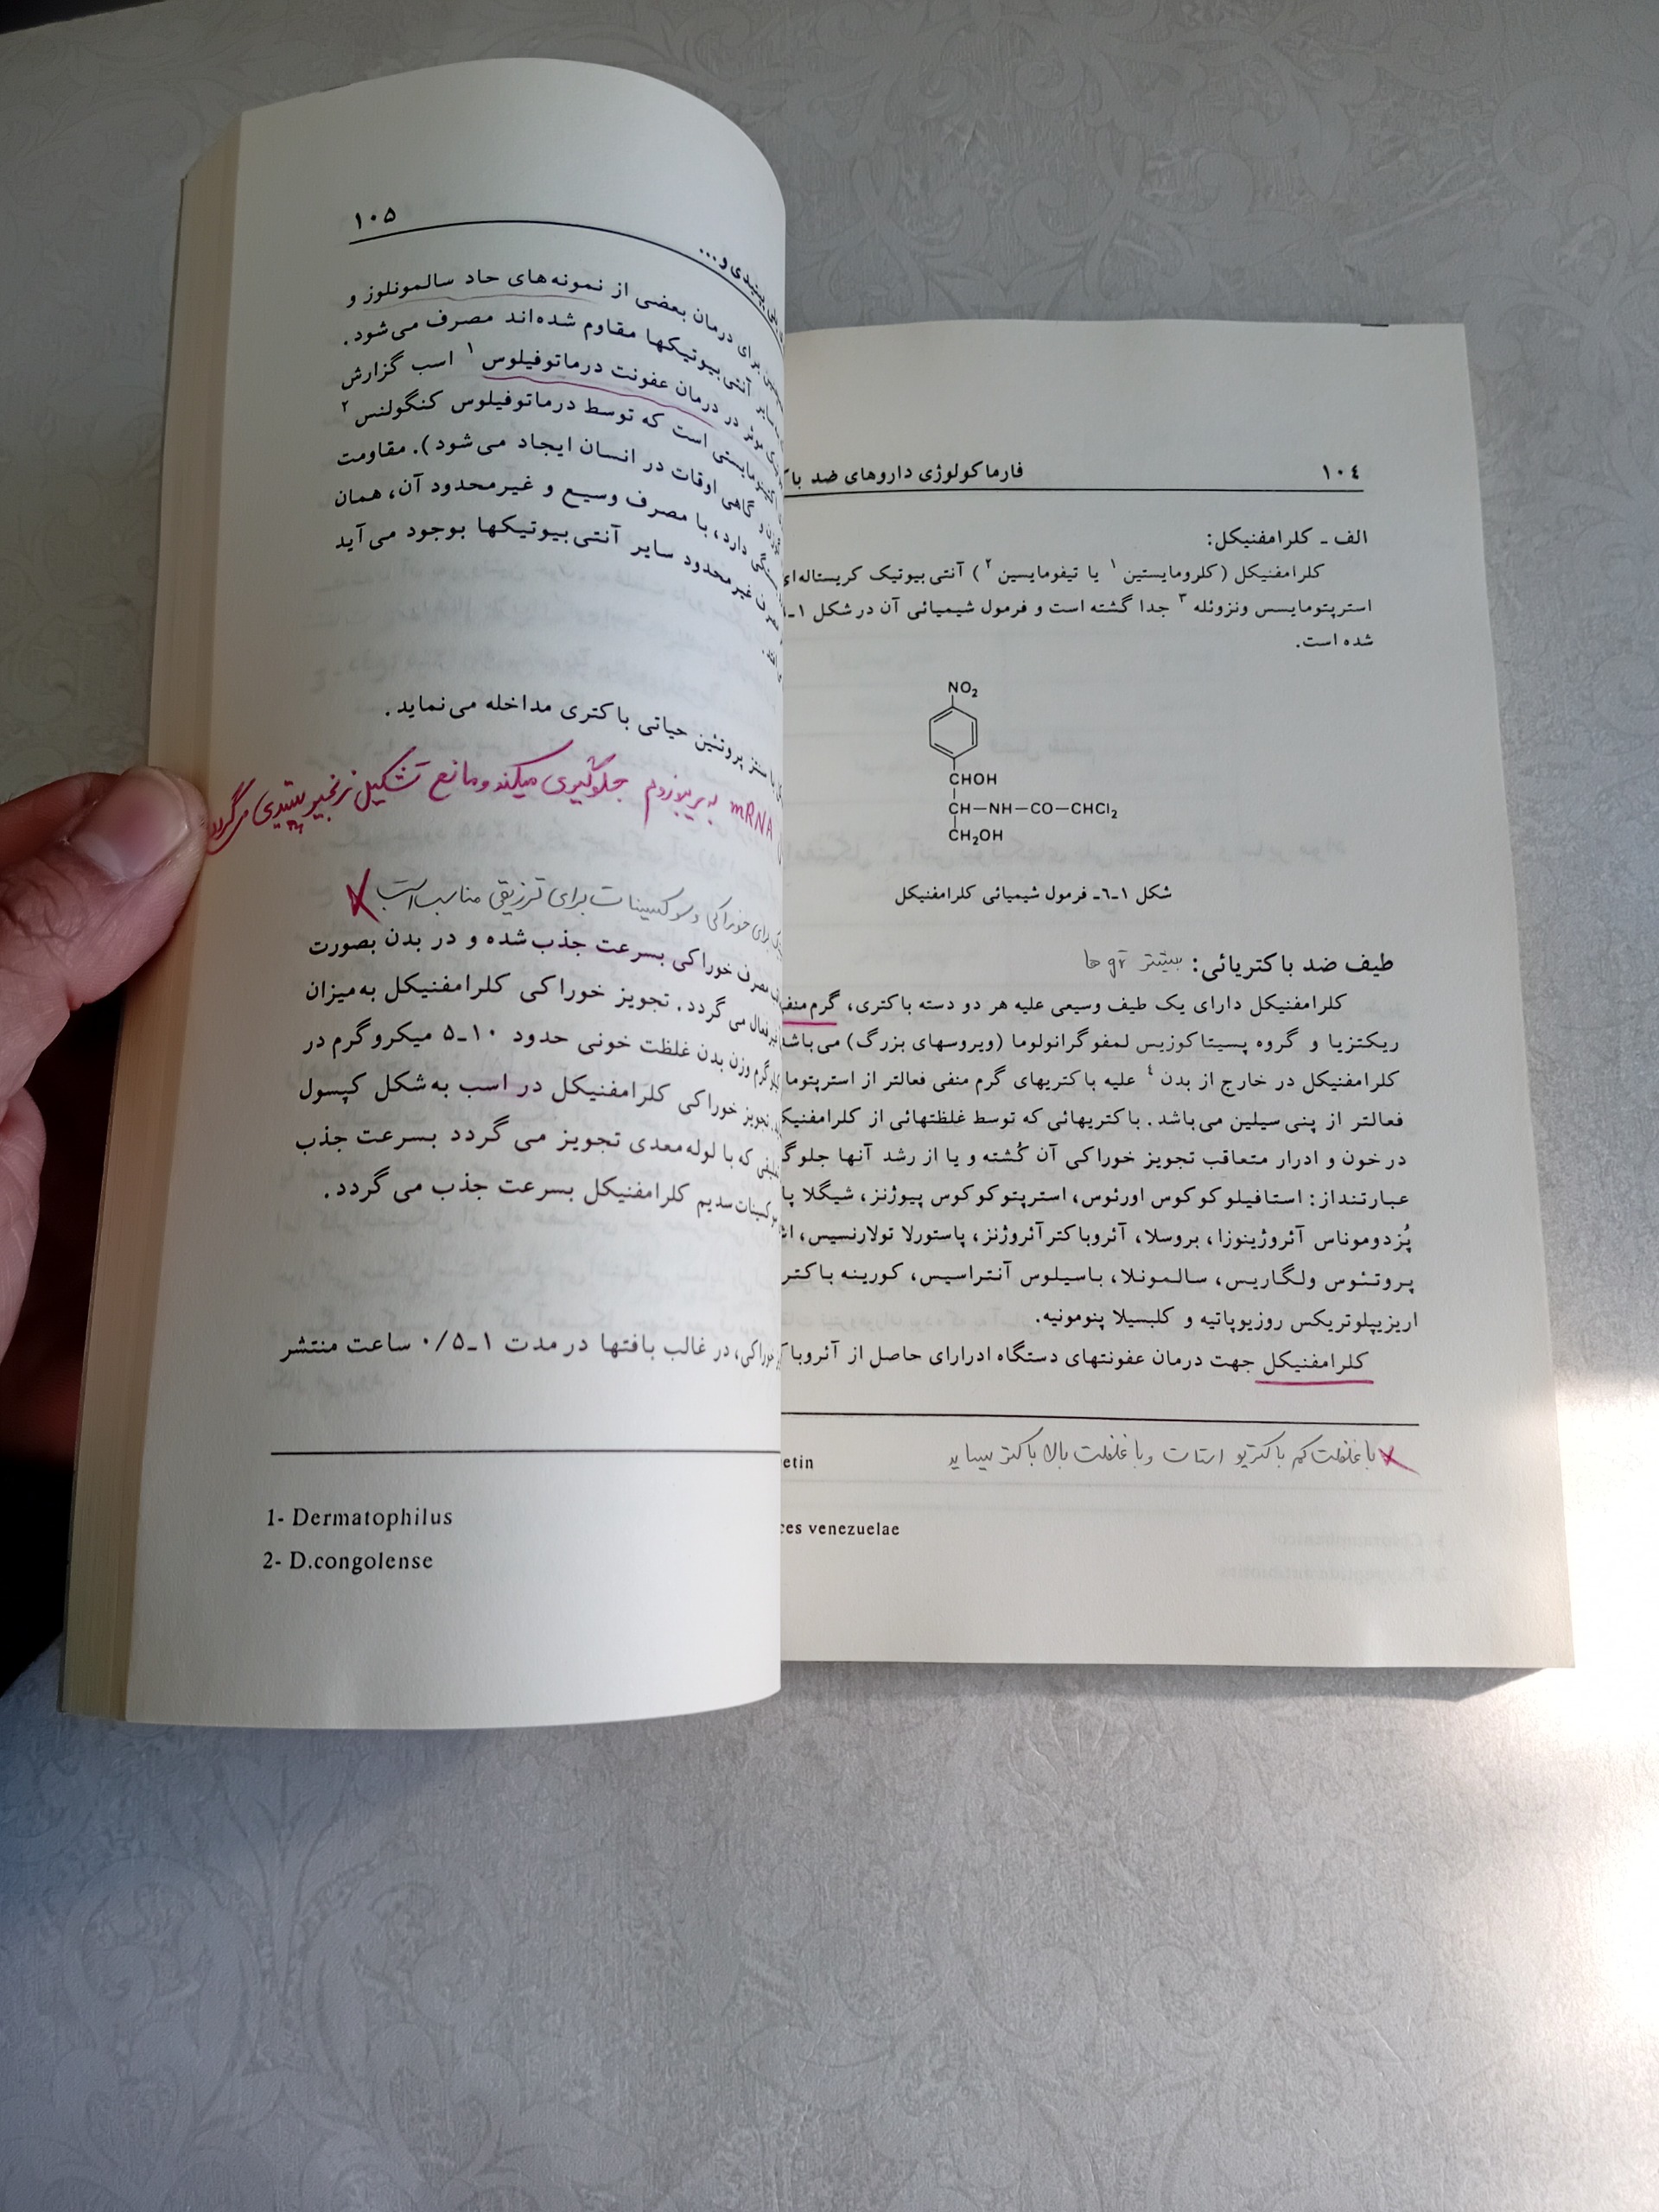 ۱۰٤
فارماکولوژی داروهای ضد
الف ـ کلرامفنیکل:
کلرامفنیکل (کلرومایستین ۱ یا تیفومایسین ۲) آنتی‌بیوتیک کریستاله‌ای
استرپتومایسس ونزوئله ۳ جدا گشته است و فرمول شیمیائی آن در شکل ۱ـ
شده است.
NO2
CHOH
CH—NH—CO—CHCl2
CH2OH
شکل ۱ـ٦ـ فرمول شیمیائی کلرامفنیکل
طیف ضد باکتریائی: بیشتر ها
کلرامفنیکل دارای یک طیف وسیعی علیه هر دو دسته باکتری، گرم منفی
ریکتزیا و گروه پسیتاکوزیس لمفوگرانولوما (ویروسهای بزرگ) می‌باشد
کلرامفنیکل در خارج از بدن ٤ علیه باکتریهای گرم منفی فعالتر از
فعالتر از پنی سیلین می‌باشد. باکتریهائی که توسط غلظتهائی از
در خون و ادرار متعاقب تجویز خوراکی آن کُشته و یا از رشد آنها
عبارتنداز: استافیلوکوکوس اورئوس، استرپتوکوکوس پیوژنز، شیگلا
پُزدوموناس آئروژینوزا، بروسلا، آئروباکتر آئروژنز، پاستورلا تولارنسیس،
پروتئوس ولگاریس، سالمونلا، باسیلوس آنتراسیس، کورینه
اریزیپلوتریکس روزیوپاتیه و کلبسیلا پنومونیه.
کلرامفنیکل جهت درمان عفونتهای دستگاه ادرارای حاصل از
با غلظت کم باکتریو استات و با غلظت بالا باکتر یساید
etin
ces venezuelae
۱۰۵
برای درمان بعضی از نمونه‌های حاد سالمونلوز و
آنتی‌بیوتیکها مقاوم شده‌اند مصرف می‌شود.
موثر در درمان عفونت درماتوفیلوس ۱ اسب گزارش
است که توسط درماتوفیلوس کنگولنس ۲
گاهی اوقات در انسان ایجاد می‌شود). مقاومت
دارد، با مصرف وسیع و غیرمحدود آن، همان
غیرمحدود سایر آنتی‌بیوتیکها بوجود می‌آید
با سنتز پروتئین حیاتی باکتری مداخله می‌نماید.
mRNA به ریبوزوم جلوگیری میکند و مانع تشکیل زنجیر پپتیدی می‌گردد
برای خوراکی و سوکسینات برای تزریقی مناسب است
مصرف خوراکی بسرعت جذب شده و در بدن بصورت
غیرفعال می گردد. تجویز خوراکی کلرامفنیکل به‌میزان
وزن بدن غلظت خونی حدود ۱۰ـ۵ میکروگرم در
تجویز خوراکی کلرامفنیکل در اسب به‌شکل کپسول
که با لوله‌معدی تجویز می گردد بسرعت جذب
سدیم کلرامفنیکل بسرعت جذب می گردد.
خوراکی، در غالب بافتها در مدت ۱ـ۰/۵ ساعت منتشر
1- Dermatophilus
2- D.congolense